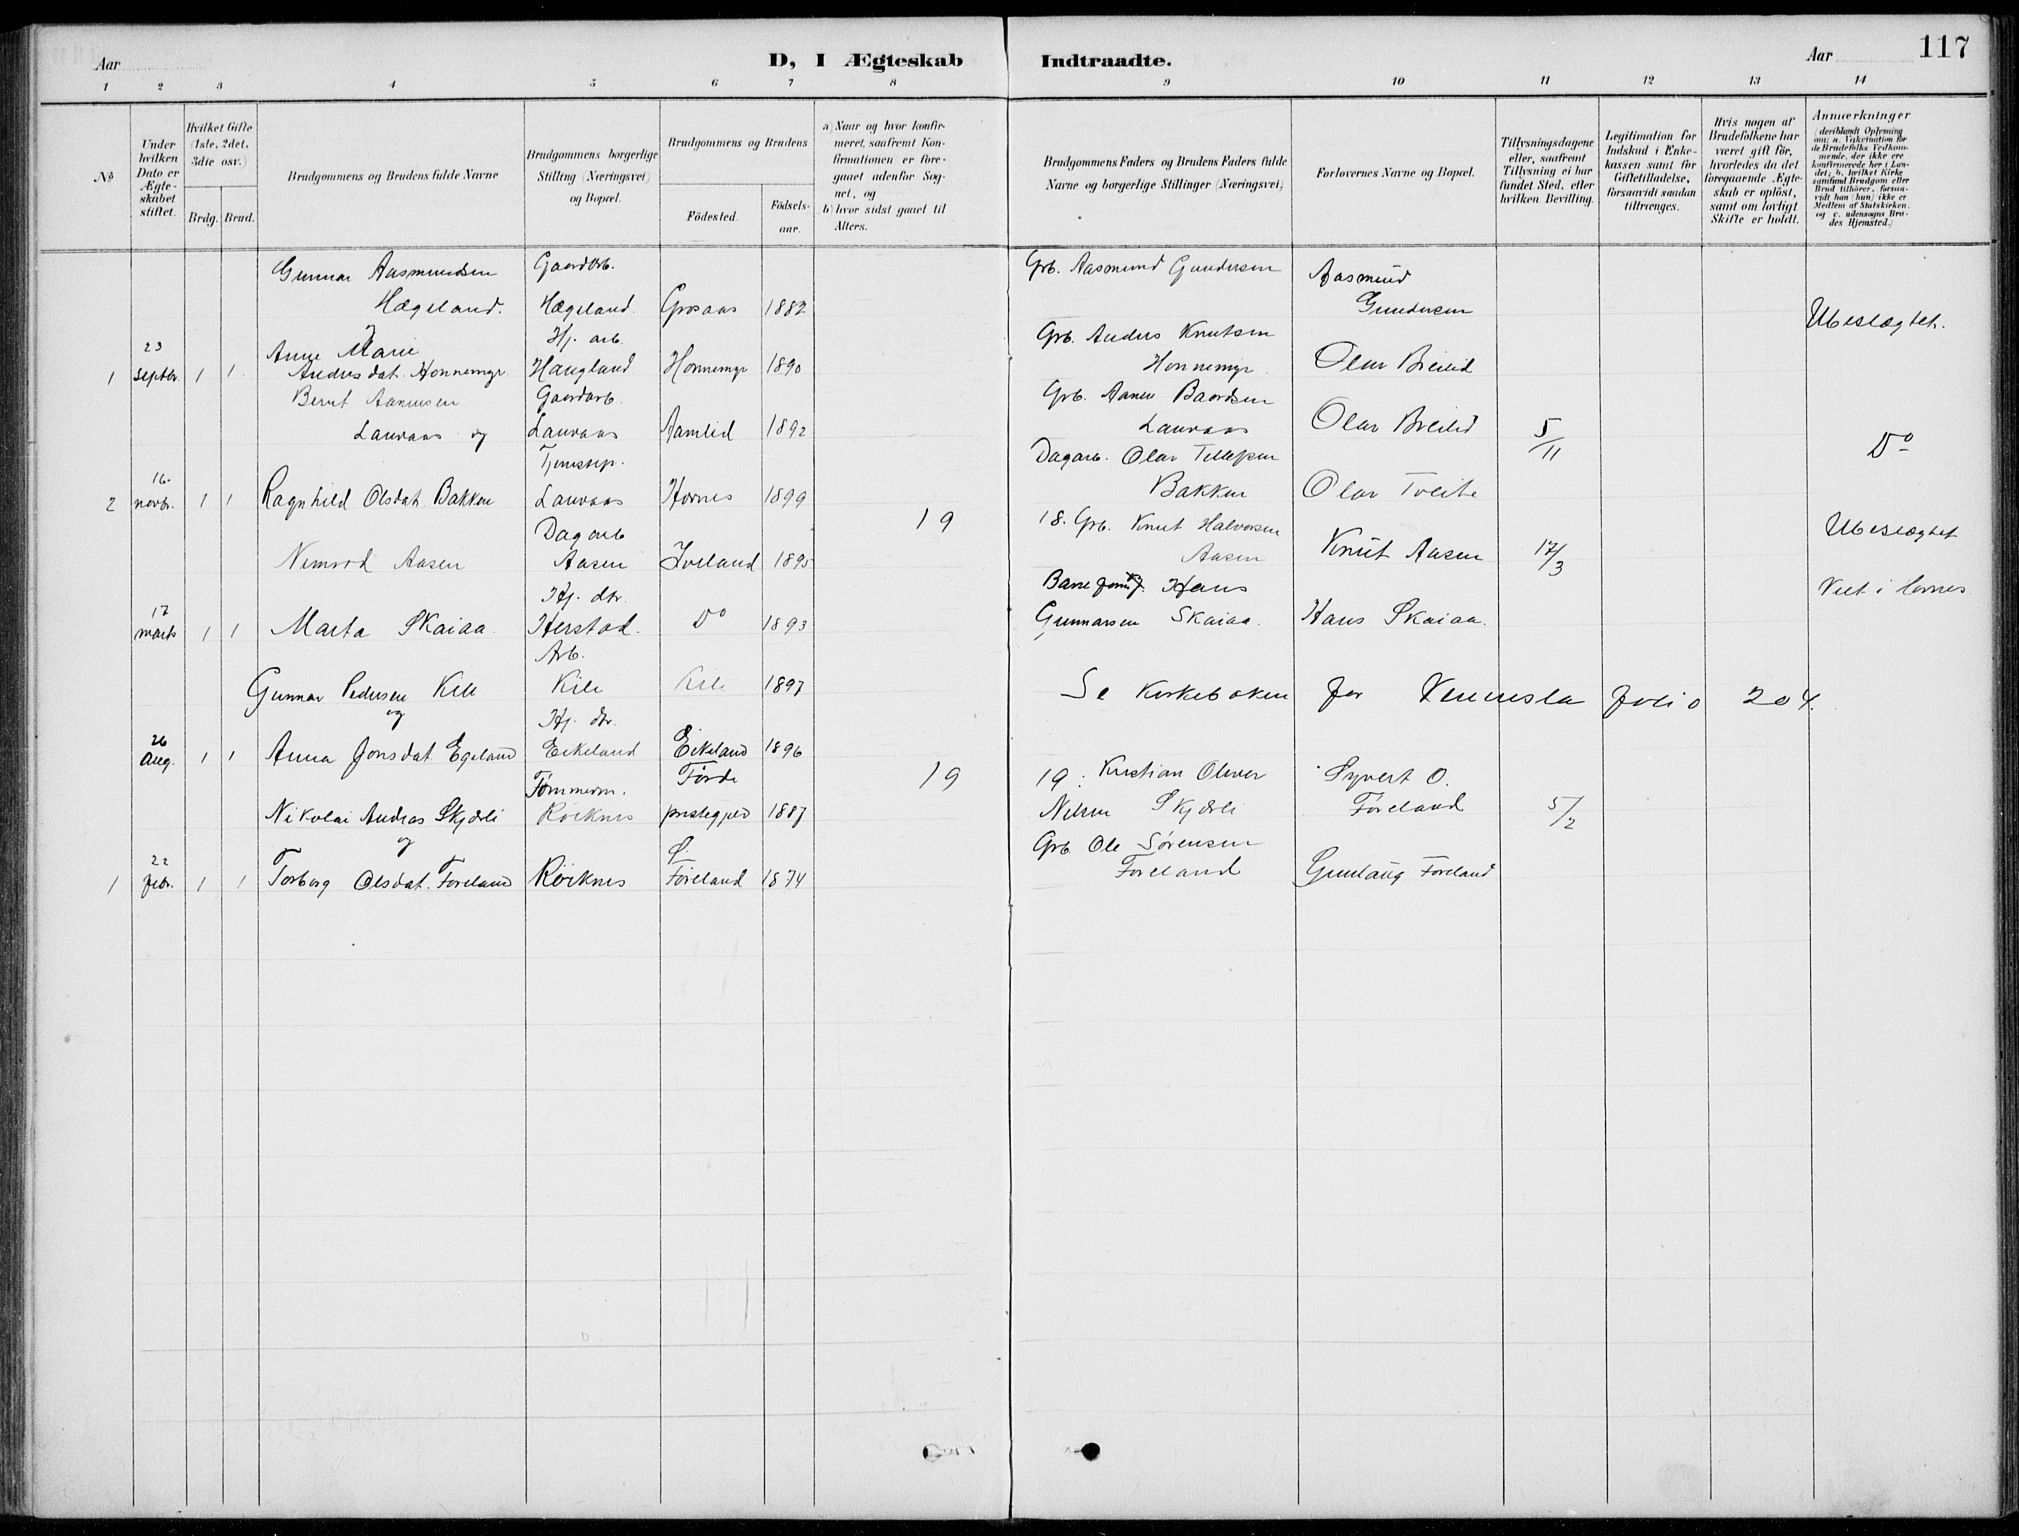 Aar
D, I Ægteskab Indtraadte.
Aar
117
1 2 3 4 5 6 7 8 9 10 11 12 13 14
No
Under hvilken Dato er Ægte-skabet stiftet.
Hvilket Gifte (1ste, 2det, 3die osv.)
Brdg. Brud.
Brudgommens og Brudens fulde Navne
Brudgommens borgerlige Stilling (Næringsvei) og Bopæl.
Brudgommens og Brudens
Födested.
Födsels-aar.
a) Naar og hvor konfir-meret, saafremt Kon-firmationen er fore-gaaet udenfor Sog-net, og
b) hvor sidst gaaet til Alters.
Brudgommens Faders og Brudens Faders fulde Navne og borgerlige Stillinger (Næringsvei)
Forlovernes Navne og Bopæl.
Tillysningsdagene eller, saafremt Tillysning ei har fundet Sted, efter hvilken Bevilling.
Legitimation for Indskud i Enke-kassen samt for Giftetilladelse, forsaavidt saadan tiltrænges.
Hvis nogen af Brudefolkene har været gift för, hvorledes da det foregaaende Ægte-skab er oplöst, samt om lovligt Skifte er holdt.
Anmærkninger
(deriblandt Oplysning om: a. Vakcination för de Brudefolks Vedkom-mende, der ikke ere konfirmerede her i Lan-det; b. hvilket Kirke-samfund Brudgom eller Brud tilhörer, forsaa-vidt han (hun) ikke er Medlem af Statskirken. og c. udensogns Bru-des Hjemsted.)
Gunnar Aasmundsen Gaardarb. Grb. Aasmund Gundersen Aasmund
Hægeland. Hægeland. Grosaas 1882 Gundersen Ubeslægtet.
23 Anne Marie Hj. arb. Grb. Anders Knutsen
1 Septbr. 1 1 Andersdat. Honnemyr Haugland Honnemyr 1890 Honnemyr Olav Breilid
Bernt Aanensen Gaardarb. Grb. Aanen Baardsen
Lauvaas og Lauvaas Aamlid 1892 Lauvaas Olav Breilid 5/11 Do
16. Tjenestep. Dagarb. Olav Tellefsen
2 novbr. 1 1 Ragnhild Olsdat. Bakken Lauvaas Hornes 1899 Bakken Olav Tveite
19 18. Grb. Knut Halvorsen Ubeslægtet
Dagarb
Nimrod Aasen Aasen Iveland 1895 Aasen Knut Aasen 17/3
17 Hj. dtr. Hans Viet i Hornes
marts 1 1 Marta Skaiaa Herstad. Do 1893 Gunnarsen Skaiaa. Hans Skaiaa.
Arb.
Gunnar Pedersen Kile Kile Kile 1897 Se Kirkeboken for Vennesla folio 204.
og Hj. dtr.
26 Aug. 1 1 Anna Jonsdat Egeland Eikeland Eikeland 1896
19 19. Kristian Oliver Syvert O.
Tömmerm. Förde
Nikolai Andreas Skjærli Röiknes prestegjeld 1887 Nilsen Skjærli Föreland 5/2
og Grb. Ole Sørensen
22
1 febr. 1 1 Torborg Olsdat. Föreland Röiknes Föreland 1874 Föreland Gunlaug Föreland